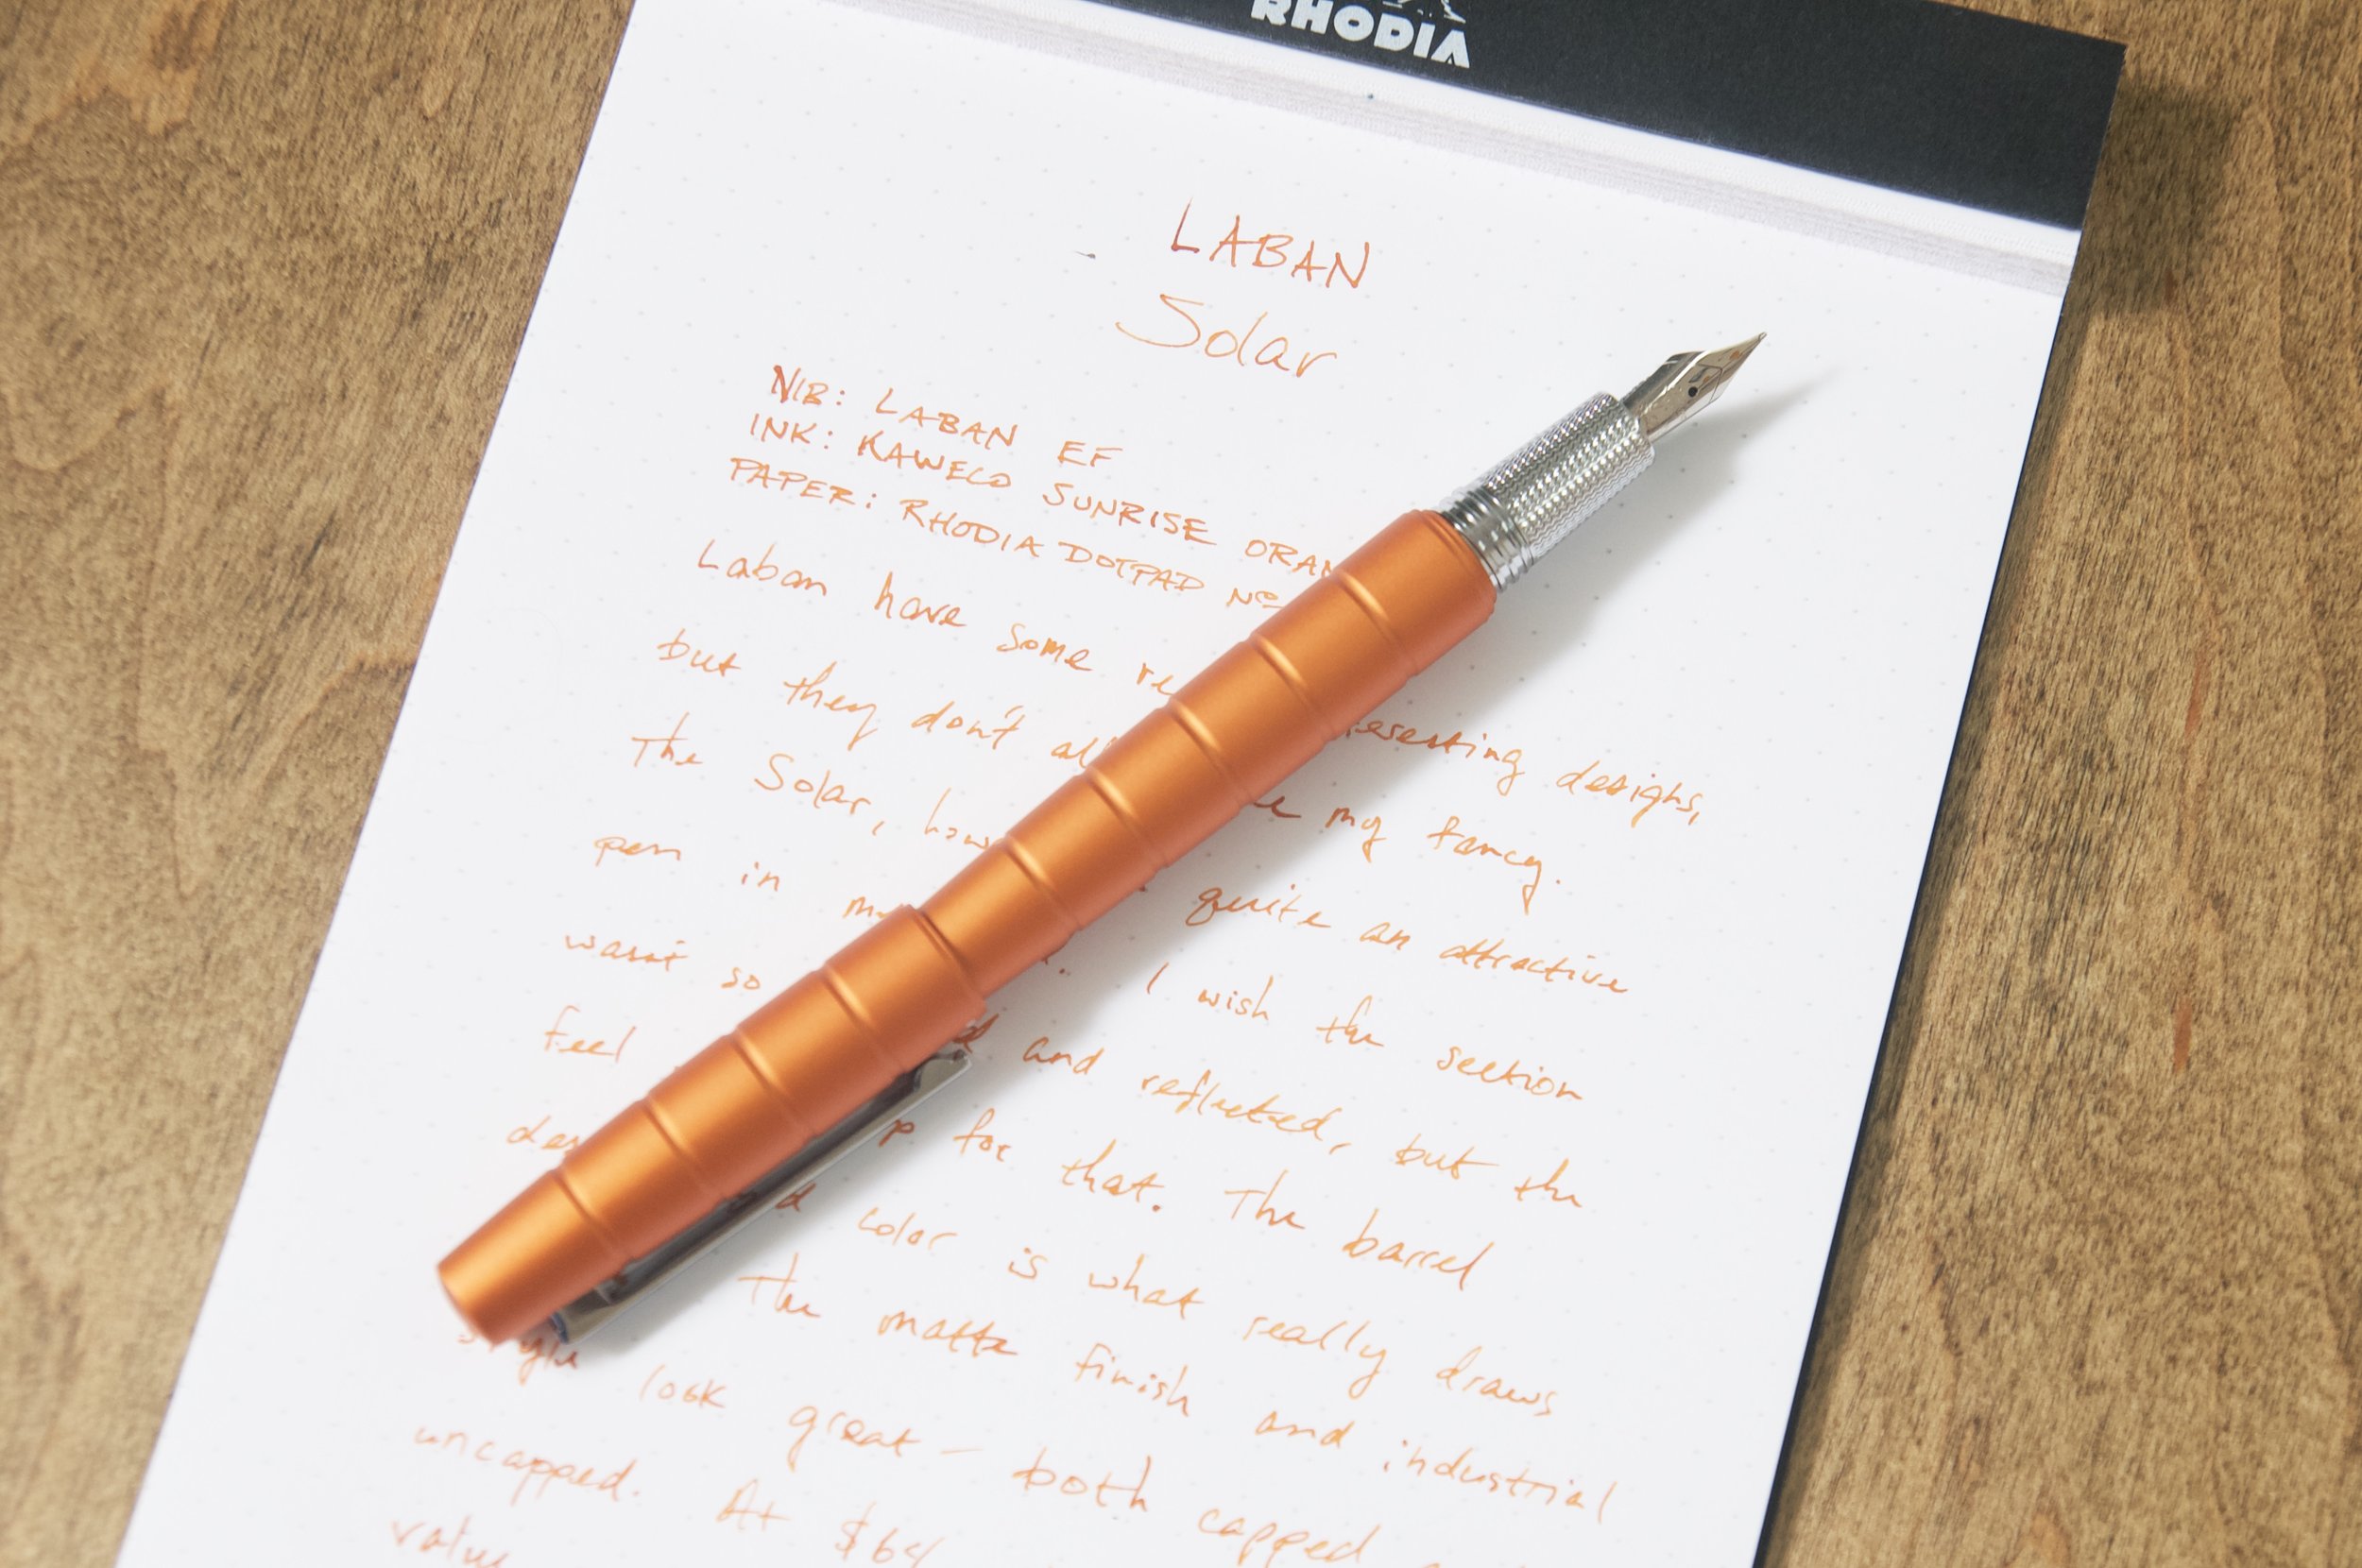 RHODIA
LABAN
Solar
NIB: LABAN EF
INK: KAWECO SUNRISE ORAN
PAPER: RHODIA DOTPAD No
Laban have some re eresting designs,
but they don't all my fancy.
The Solar, how quite an attractive
pen in my I wish the section
wasn't so and reflected, but the
feel p for that. The barrel
des color is what really draws
The matte finish and industrial
style look great – both capped
uncapped. At $64
value